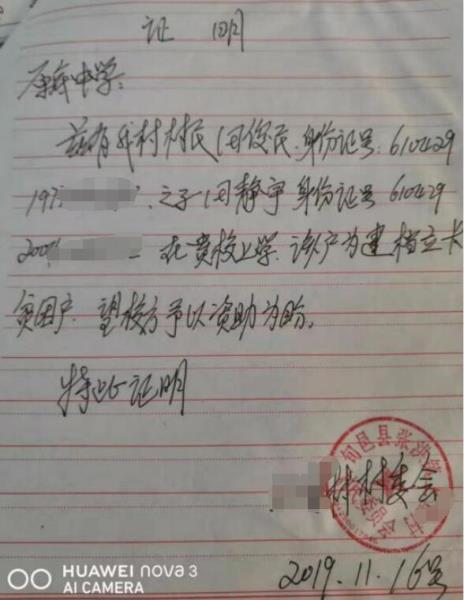 证明
中学:
兹有我村村民闫俊民,身份证号:610429
197 之子闫静宇身份证号610429
200 在贵校上学,该户为建档立卡
贫困户,望校方予以资助为盼。
特此证明
旬邑县张洪镇
林村委会
委员会
2019.11.16号
HUAWEI nova 3
AI CAMERA